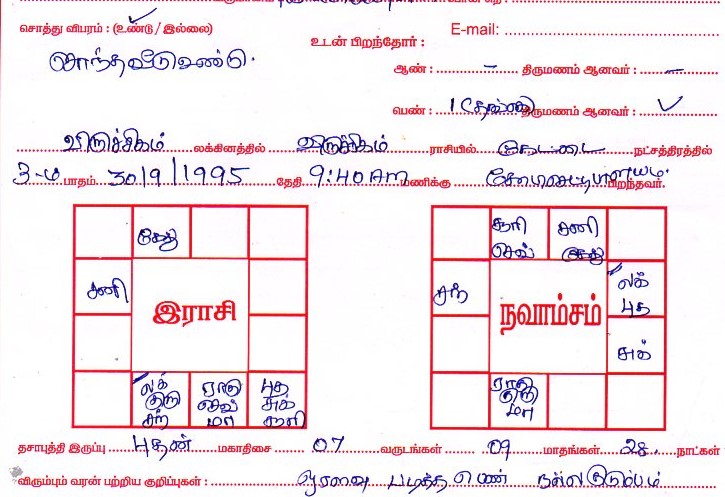 சொத்து விபரம் : (உண்டு / இல்லை)
E-mail:
சொந்தவீடு உண்டு.
உடன் பிறந்தோர் :
ஆண் : – திருமணம் ஆனவர் : –
பெண் : 1 திருமணம் ஆனவர் : ✓
விருச்சிகம் லக்கினத்தில் விருச்சிகம் ராசியில் கேட்டை நட்சத்திரத்தில்
3-ம் பாதம். 30/9/1995 தேதி 9:40 AM மணிக்கு பிறந்தவர்.
கேது
சனி
இராசி
லக் குரு சந்
ராகு செவ் மா
புத சுக் சூரி
சூரி செவ்
சனி கேது
சந்
லக் புத
நவாம்சம்
சுக்
ராகு குரு மா
தசாபுத்தி இருப்பு புதன் மகாதிசை 07 வருடங்கள் 09 மாதங்கள் 28 நாட்கள்
விரும்பும் வரன் பற்றிய குறிப்புகள் : ஓரளவு படித்த பெண் நல்ல குடும்பம்